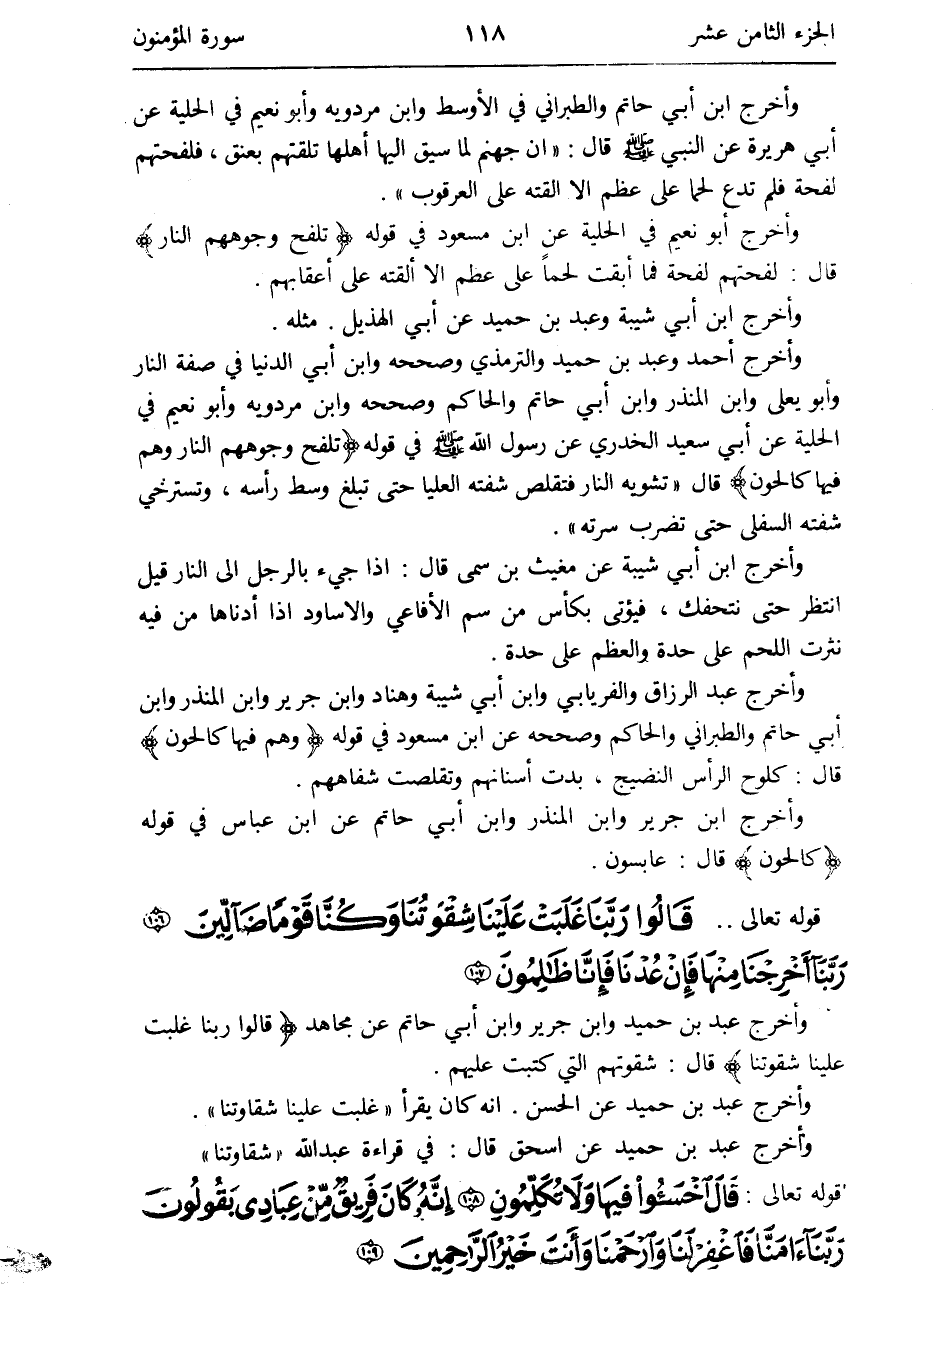 الجزء الثامن عشر ١١٨ سورة المؤمنون
وأخرج ابن أبي حاتم والطبراني في الأوسط وابن مردويه وأبو نعيم في الحلية عن
أبي هريرة عن النبي ﷺ قال : « ان جهنم لما سيق اليها أهلها تلقتهم بعنق ، فلفحتهم
لفحة فلم تدع لحما على عظم الا القته على العرقوب » .
وأخرج أبو نعيم في الحلية عن ابن مسعود في قوله ﴿ تلفح وجوههم النار ﴾
قال : لفحتهم لفحة فما أبقت لحماً على عظم الا ألقته على أعقابهم .
وأخرج ابن أبي شيبة وعبد بن حميد عن أبي الهذيل . مثله .
وأخرج أحمد وعبد بن حميد والترمذي وصححه وابن أبي الدنيا في صفة النار
وأبو يعلى وابن المنذر وابن أبي حاتم والحاكم وصححه وابن مردويه وأبو نعيم في
الحلية عن أبي سعيد الخدري عن رسول الله ﷺ في قوله ﴿تلفح وجوههم النار وهم
فيها كالحون﴾ قال « تشويه النار فتقلص شفته العليا حتى تبلغ وسط رأسه ، وتسترخي
شفته السفلى حتى تضرب سرته » .
وأخرج ابن أبي شيبة عن مغيث بن سمى قال : اذا جيء بالرجل الى النار قيل
انتظر حتى نتحفك ، فيؤتى بكأس من سم الأفاعي والاساود اذا أدناها من فيه
نثرت اللحم على حدة والعظم على حدة .
وأخرج عبد الرزاق والفريابي وابن أبي شيبة وهناد وابن جرير وابن المنذر وابن
أبي حاتم والطبراني والحاكم وصححه عن ابن مسعود في قوله ﴿ وهم فيها كالحون ﴾
قال : كلوح الرأس النضيج ، بدت أسنانهم وتقلصت شفاههم .
وأخرج ابن جرير وابن المنذر وابن أبي حاتم عن ابن عباس في قوله
﴿كالحون ﴾ قال : عابسون .
قوله تعالى .. قَالُوا۟ رَبَّنَا غَلَبَتْ عَلَيْنَا شِقْوَتُنَا وَكُنَّا قَوْمًا ضَآلِّينَ ۝١٠٦
رَبَّنَآ أَخْرِجْنَا مِنْهَا فَإِنْ عُدْنَا فَإِنَّا ظَٰلِمُونَ ۝١٠٧
وأخرج عبد بن حميد وابن جرير وابن أبي حاتم عن مجاهد ﴿ قالوا ربنا غلبت
علينا شقوتنا ﴾ قال : شقوتهم التي كتبت عليهم .
وأخرج عبد بن حميد عن الحسن . انه كان يقرأ « غلبت علينا شقاوتنا » .
وأخرج عبد بن حميد عن اسحق قال : في قراءة عبدالله « شقاوتنا »
قوله تعالى : قَالَ ٱخْسَـُٔوا۟ فِيهَا وَلَا تُكَلِّمُونِ ۝١٠٨ إِنَّهُۥ كَانَ فَرِيقٌ مِّنْ عِبَادِى يَقُولُونَ
رَبَّنَآ ءَامَنَّا فَٱغْفِرْ لَنَا وَٱرْحَمْنَا وَأَنتَ خَيْرُ ٱلرَّٰحِمِينَ ۝١٠٩